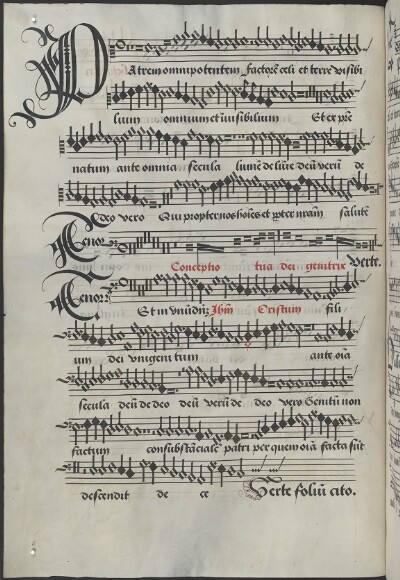 Patrem omnipotentem factorē celi et terre visibi
lium omnium et īuisibilium Et ex pr̄e
natum ante omnia secula lumē de lūie deū verū de
deo vero Qui propter nos hoīes et ꝓter nr̄am salutē
Tenor Verte.
Conceptio tua dei genitrix
Tenor
Et in vnū dn̄ꝫ Ihm̄ Cristum fili
um dei vnigenitum ante oīa
secula deū de deo deū verū de deo vero Genitū non
factum consubstāciale patri per quem oīa facta sūt
descendit de ce Verte foliū cito.